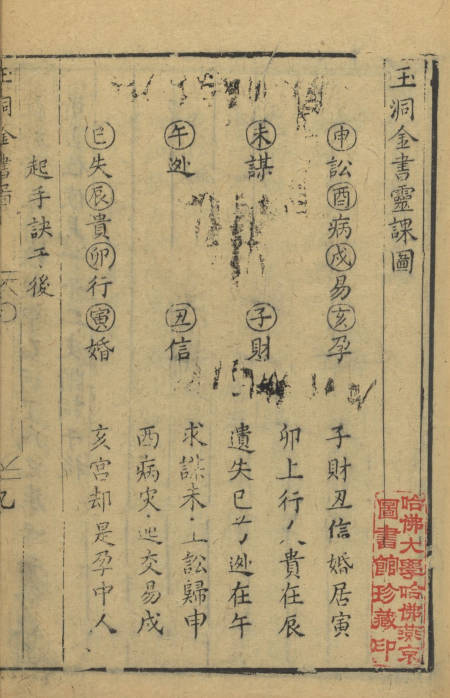 玉洞金書靈課圖
申訟酉病戌易亥孕
未謀 子財
午逃 丑信
巳失辰貴卯行寅婚
子財丑信婚居寅
卯上行人貴在辰
遺失巳 逃在午
求謀未 訟歸申
酉病灾 交易戌
亥宮却是孕中人
起手訣 後
玉洞金書
哈佛大學哈佛燕京
圖書館珍藏印